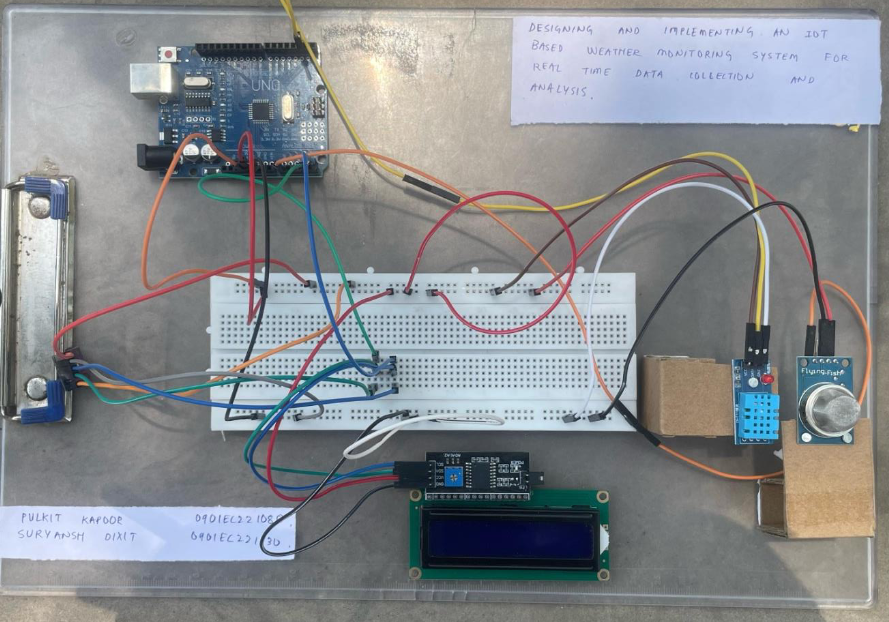 DESIGNING AND IMPLEMENTING AN IOT
BASED WEATHER MONITORING SYSTEM FOR
REAL TIME DATA COLLECTION AND
ANALYSIS.
UNO
Flying-Fish
PULKIT KAPOOR
SURYANSH DIXIT